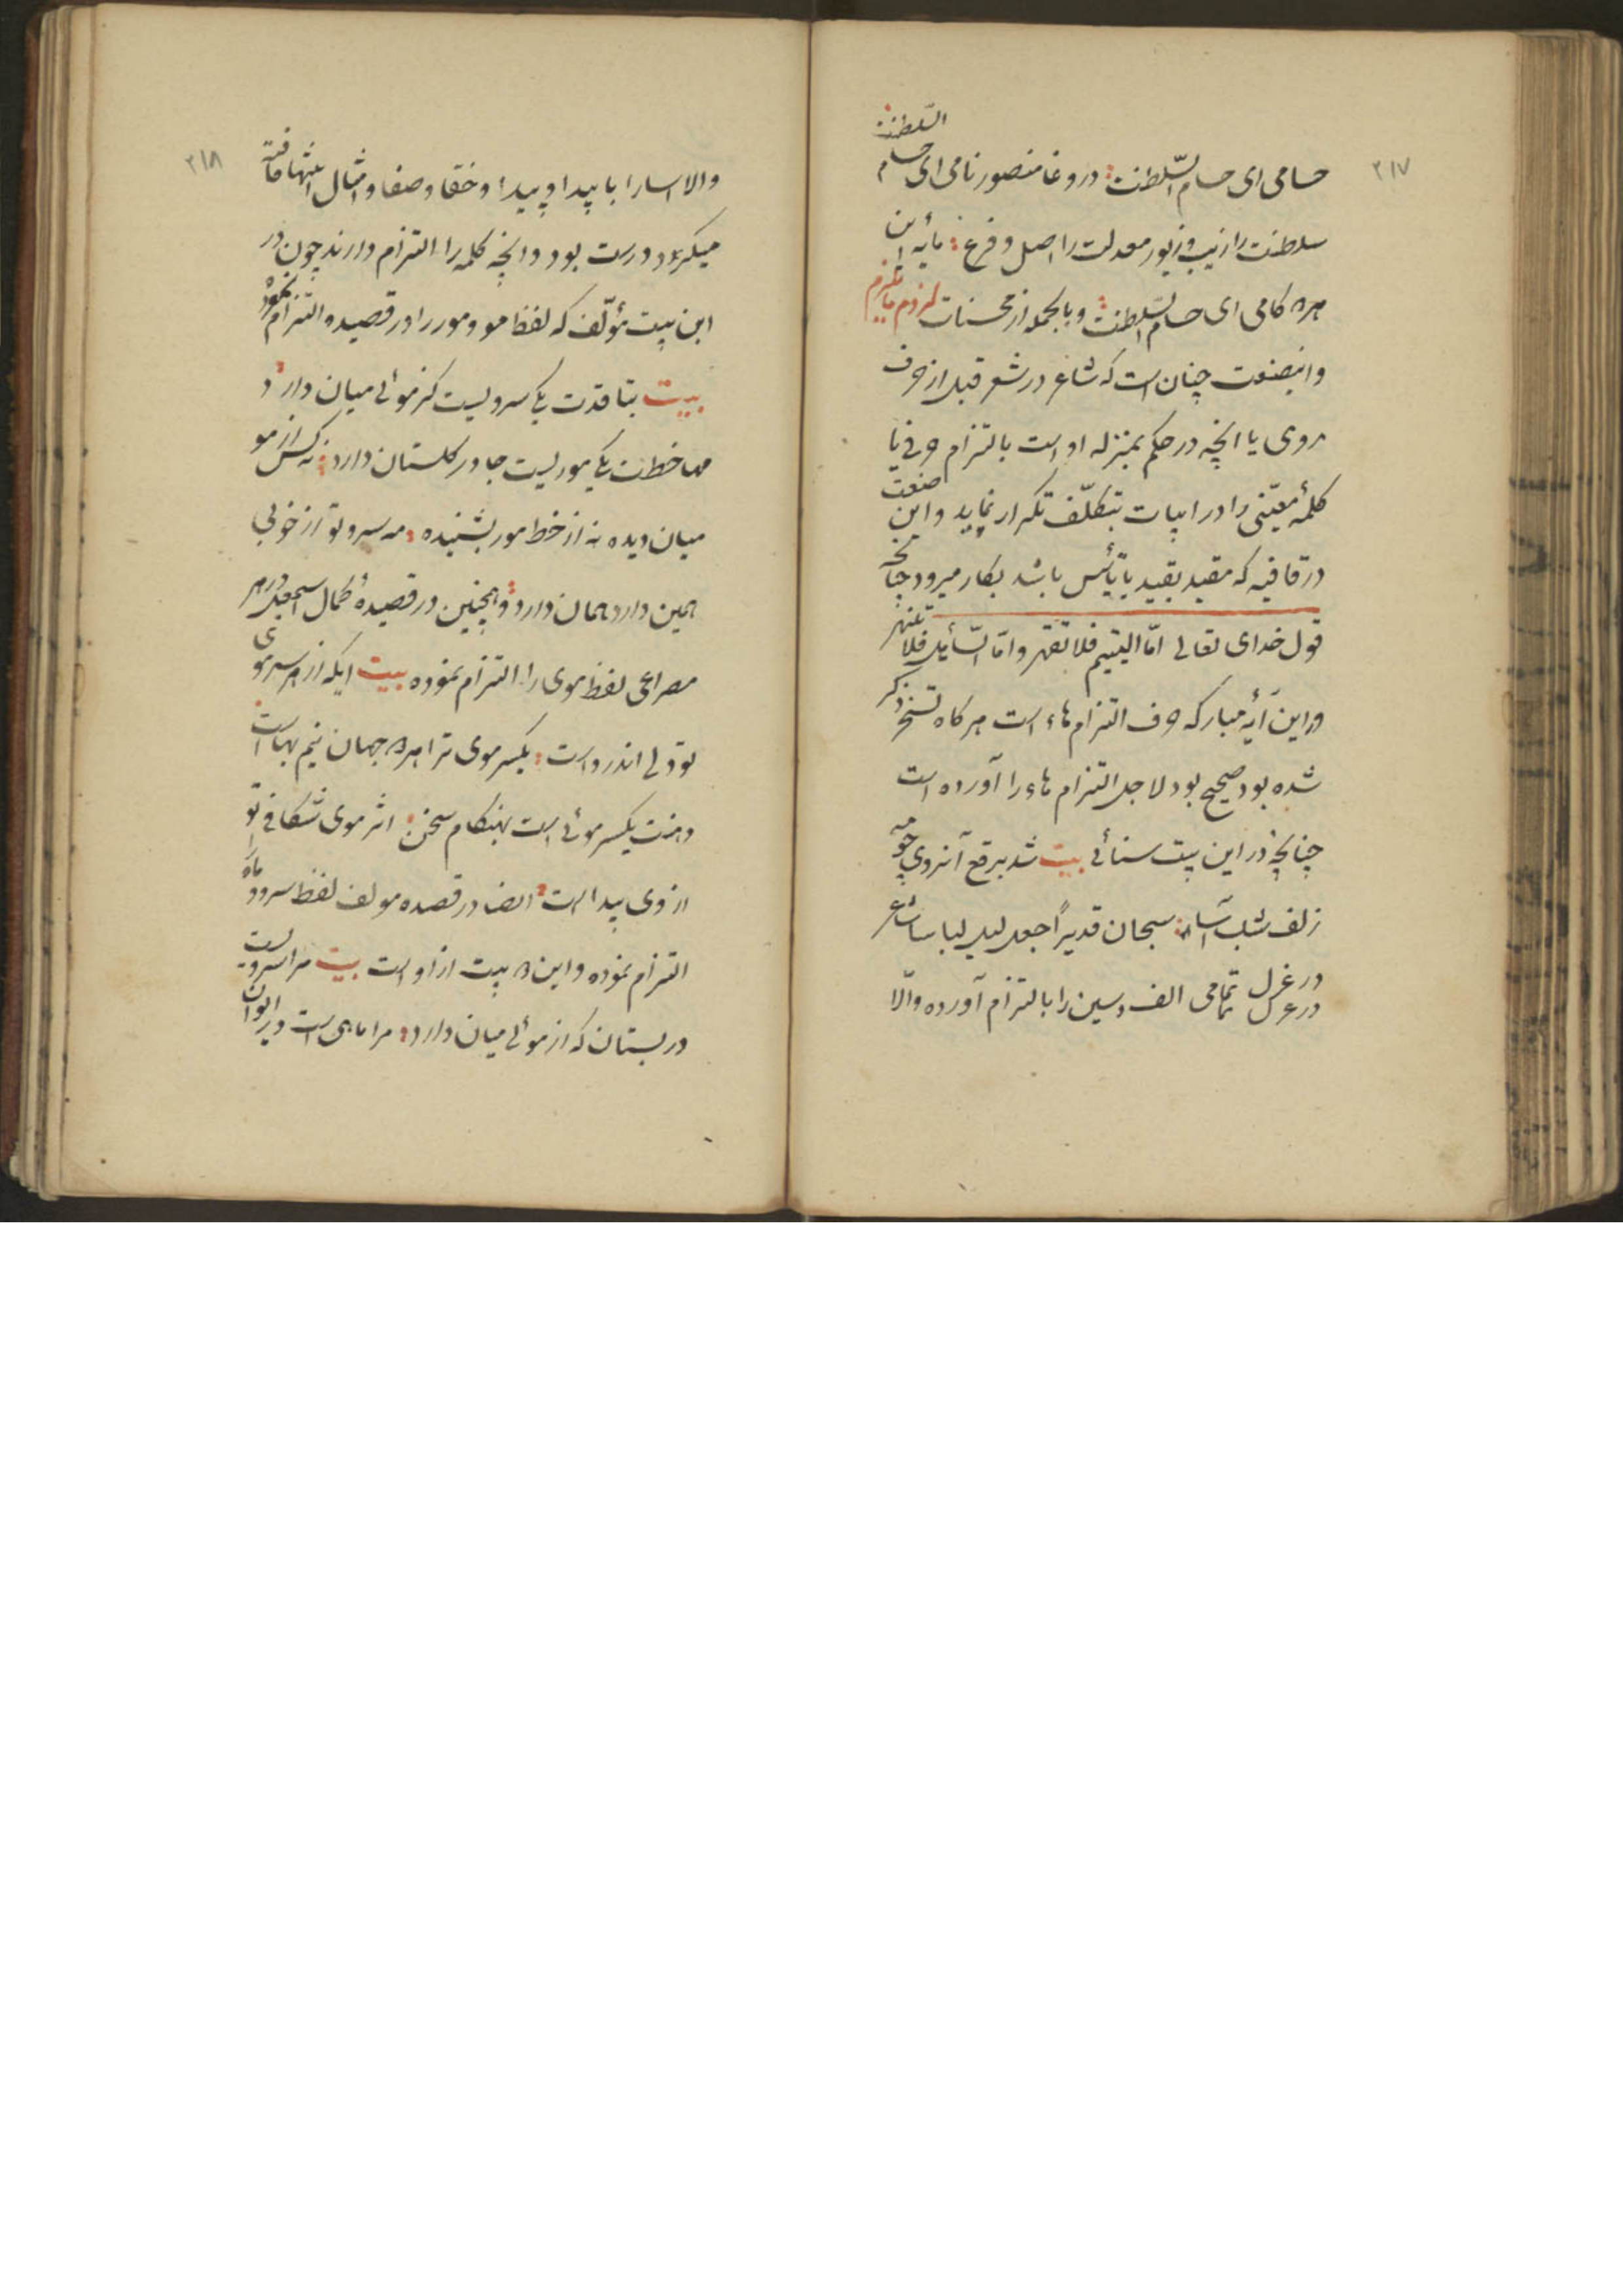 ۲۱۷
حسامی ای حسام السّلطنت در وغا منصور نامی ای حسام السّلطنت
سلطنت را زیب و زیور معدلت را اصل و فرع مایه این
هر کامی ای حسام السّلطنت و بالجمله از محسنات لزوم ما یلزم
و اینصنعت چنان است که شاعر در شعر قبل از حرف
روی یا انچه در حکم بمنزله او است بالتزام حرفی یا
کلمهٔ معیّنی را در ابیات بتکلّف تکرار نماید و این صنعت
در قافیه که مقید بقید یا تأسیس باشد بکار میرود چنانچه
قول خدای تعالی امّا الیتیم فلا تقهر و امّا السّائل فلا تنهر
در این آیهٔ مبارکه حرف التزام هاء است هر کاه تسخر ذکر
شده بود صحیح بود لاجل التزام هاء را آورده است
چنانچه در این بیت سنائی بیت شد برقع آنروی چو مه
زلف شب آسا سبحان قدیراً جعل لیل لباسا شاعر
در غزل تمامی الف و سین را بالتزام آورده و الّا
۲۱۸
و الا اسا را با پیدا و پیدا و خفا و صفا و امثال اینها قافیه
میکرد درست بود و انچه کلمه را التزام دارند چون در
این بیت مؤلّف که لفظ مو و مور را در قصیده التزام نموده
بیت بتا قدت یکی سرویست کز موئی میان دارد
مها خطت یکی موریست جا در کلستان دارد نه کس از مو
میان دیده نه از خط مور بشنیده مه سرو تو از خوبی
همین دارد همان دارد و همچنین در قصیدهٔ کمال اسمعیل در هر
مصراعی لفظ موی را التزام نموده بیت ایکه از هر سر موی
تو دلی اندر واست یکسر موی ترا هر جهان نیم بهاست
دهنت یکسر موئی است بهنکام سخن اثر موی شکافی تو
از وی پیدا است ایضا در قصیده مولف لفظ سرو و ماه
التزام نموده و این بیت از او است بیت مرا سرویست
در بستان که از موئی میان دارد مرا ماهی است در ایوان